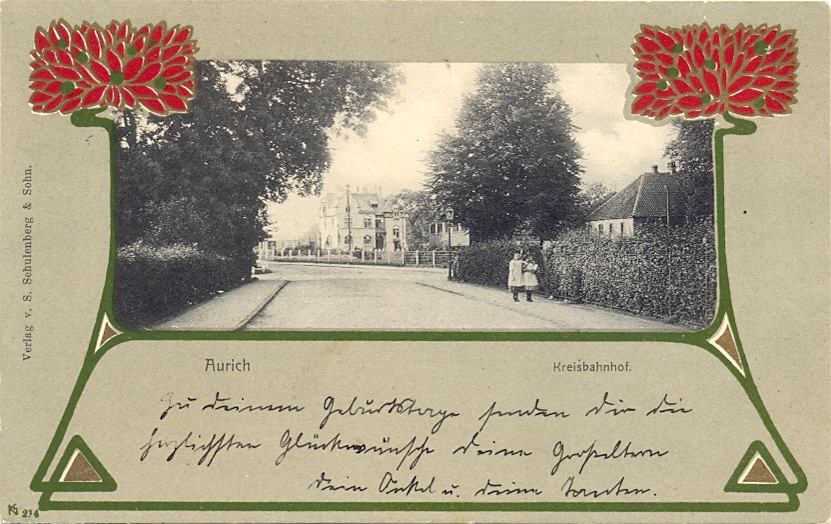 Verlag v. S. Schulenberg & Sohn.
Aurich
Kreisbahnhof.
Zu deinem Geburtstage senden dir die
herzlichsten Glückwünsche deine Großeltern
dein Onkel u. deine Tanten.
214